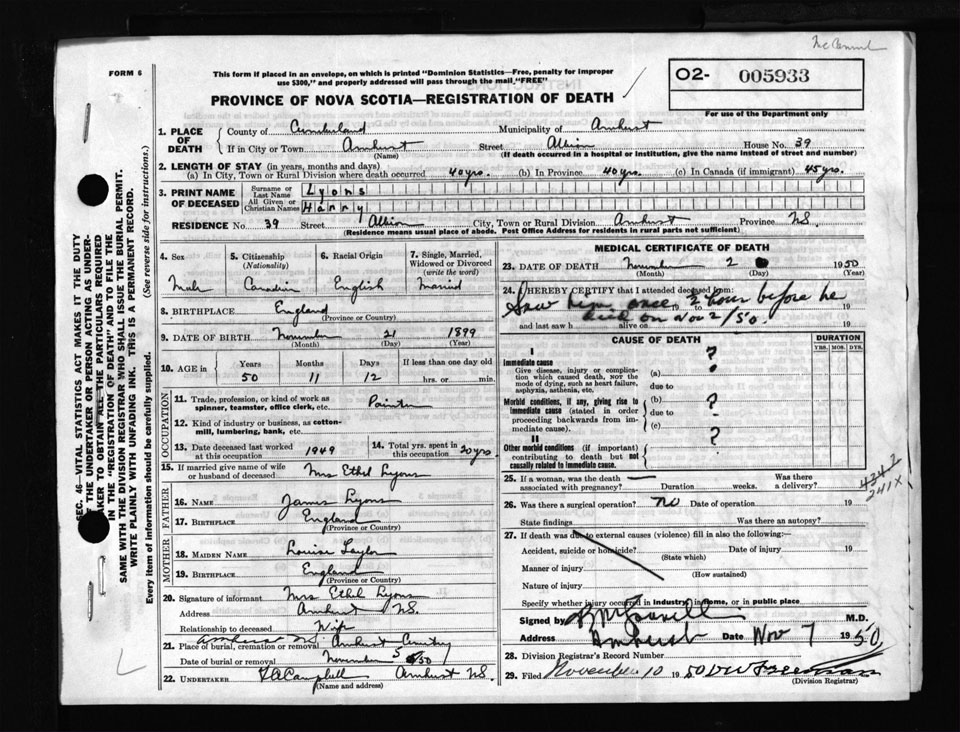 FORM 6
This form if placed in an envelope, on which is printed "Dominion Statistics—Free, penalty for improper
use $300," and properly addressed will pass through the mail "FREE"
PROVINCE OF NOVA SCOTIA—REGISTRATION OF DEATH
O2- 005933
For use of the Department only
1. PLACE OF DEATH
County of Cumberland Municipality of Amherst
If in City or Town Amherst Street Albion House No. 39
(Name) (If death occurred in a hospital or institution, give the name instead of street and number)
2. LENGTH OF STAY (in years, months and days)
(a) In City, Town or Rural Division where death occurred 40 yrs. (b) In Province 40 yrs. (c) In Canada (if immigrant) 45 yrs.
3. PRINT NAME OF DECEASED
Surname or Last Name Lyons
All Given or Christian Names Harry
RESIDENCE No. 39 Street Albion City, Town or Rural Division Amherst Province N.S.
(Residence means usual place of abode. Post Office Address for residents in rural parts not sufficient)
4. Sex Male
5. Citizenship (Nationality) Canadian
6. Racial Origin English
7. Single, Married, Widowed or Divorced (write the word) Married
8. BIRTHPLACE England
(Province or Country)
9. DATE OF BIRTH November 21 1899
(Month) (Day) (Year)
10. AGE in Years Months Days If less than one day old
50 11 12 hrs. or min.
OCCUPATION
11. Trade, profession, or kind of work as
spinner, teamster, office clerk, etc. Painter
12. Kind of industry or business, as cotton-
mill, lumbering, bank, etc.
13. Date deceased last worked at this occupation 1949
14. Total yrs. spent in this occupation 20 yrs
15. If married give name of wife or husband of deceased Mrs Ethel Lyons
FATHER
16. NAME James Lyons
17. BIRTHPLACE England
(Province or Country)
MOTHER
18. MAIDEN NAME Louise Taylor
19. BIRTHPLACE England
(Province or Country)
20. Signature of informant Mrs Ethel Lyons
Address Amherst N.S.
Relationship to deceased Wife
21. Place of burial, cremation or removal Amherst
Date of burial or removal November 5 1950
22. UNDERTAKER Campbell Amherst N.S.
(Name and address)
MEDICAL CERTIFICATE OF DEATH
23. DATE OF DEATH November 2 1950
(Month) (Day) (Year)
24. I HEREBY CERTIFY that I attended deceased from:
Saw him once, ½ hour before he
died on Nov 2/50.
19 to 19
and last saw h alive on 19
CAUSE OF DEATH
DURATION
YRS. MOS. DYS.
I
Immediate cause
Give disease, injury or complica-
tion which caused death, NOT the
mode of dying, such as heart failure,
asphyxia, asthenia, etc.
(a) ?
due to
Morbid conditions, if any, giving rise to
immediate cause (stated in order
proceeding backwards from im-
mediate cause).
(b) ?
due to
(c)
II
Other morbid conditions (if important)
contributing to death but not
causally related to immediate cause.
?
25. If a woman, was the death associated with pregnancy? — Duration weeks. Was there a delivery?
26. Was there a surgical operation? No Date of operation 19
State findings Was there an autopsy?
27. If death was due to external causes (violence) fill in also the following:—
Accident, suicide or homicide? Date of injury 19
(State which)
Manner of injury
(How sustained)
Nature of injury
Specify whether injury occurred in industry, in home, or in public place
Signed by M.D.
Address Amherst Date Nov 7 1950
28. Division Registrar's Record Number
29. Filed November 10 1950
(Division Registrar)
SEC. 46—VITAL STATISTICS ACT MAKES IT THE DUTY
OF THE UNDERTAKER OR PERSON ACTING AS UNDER-
TAKER TO OBTAIN ALL THE PARTICULARS REQUIRED
IN THE "REGISTRATION OF DEATH" AND TO FILE THE
SAME WITH THE DIVISION REGISTRAR WHO SHALL ISSUE THE BURIAL PERMIT.
WRITE PLAINLY WITH UNFADING INK. THIS IS A PERMANENT RECORD.
Every item of information should be carefully supplied. (See reverse side for instructions.)